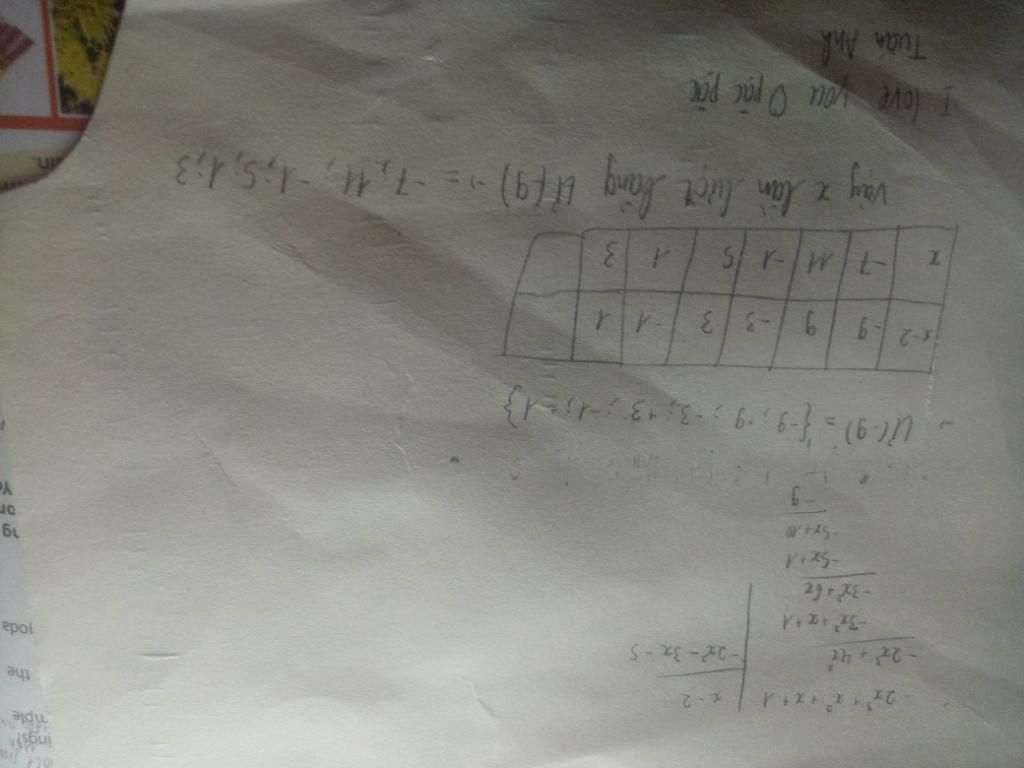 -2x³ + x² + x + 1 | x - 2
-2x³ + 4x² | -2x² - 3x - 5
-3x² + x + 1
-3x² + 6x
-5x + 1
-5x + 10
-9
Ư(-9) = {-9; +9; -3; +3; -1; +1}
x-2 | -9 | 9 | -3 | 3 | -1 | 1
x | -7 | 11 | -1 | 5 | 1 | 3
Vậy x lần lượt bằng Ư(9) => = -7; 11; -1; 5; 1; 3
I love you
Tuấn Anh
the